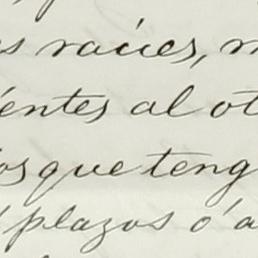 s raices, m
ientes al ot
os que teng
plazos o' a